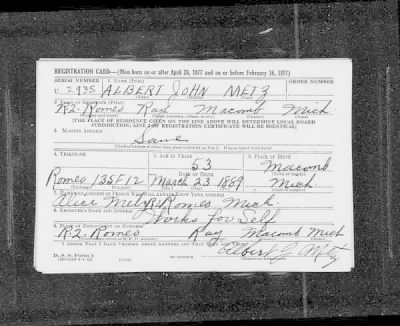 REGISTRATION CARD—(Men born on or after April 28, 1877 and on or before February 16, 1897)
SERIAL NUMBER 1. NAME (Print) ORDER NUMBER
U. 2935 ALBERT JOHN METZ
(First) (Middle) (Last)
2. PLACE OF RESIDENCE (Print)
R-2. Romeo Ray Macomb Mich
THE PLACE OF RESIDENCE GIVEN ON THE LINE ABOVE WILL DETERMINE LOCAL BOARD
JURISDICTION; LINE 2 OF REGISTRATION CERTIFICATE WILL BE IDENTICAL
3. MAILING ADDRESS
Same
4. TELEPHONE 5. AGE IN YEARS 6. PLACE OF BIRTH
53 Macomb
DATE OF BIRTH
Romeo 135F12 March 23 1889 Mich
7. NAME AND ADDRESS OF PERSON WHO WILL ALWAYS KNOW YOUR ADDRESS
Alice Romeo Mich
8. EMPLOYER'S NAME AND ADDRESS
Works for Self
9. PLACE OF EMPLOYMENT OR BUSINESS
R-2. Romeo Ray Macomb Mich
I AFFIRM THAT I HAVE VERIFIED ABOVE ANSWERS AND THAT THEY ARE TRUE.
D. S. S. Form 1
Albert J. Metz